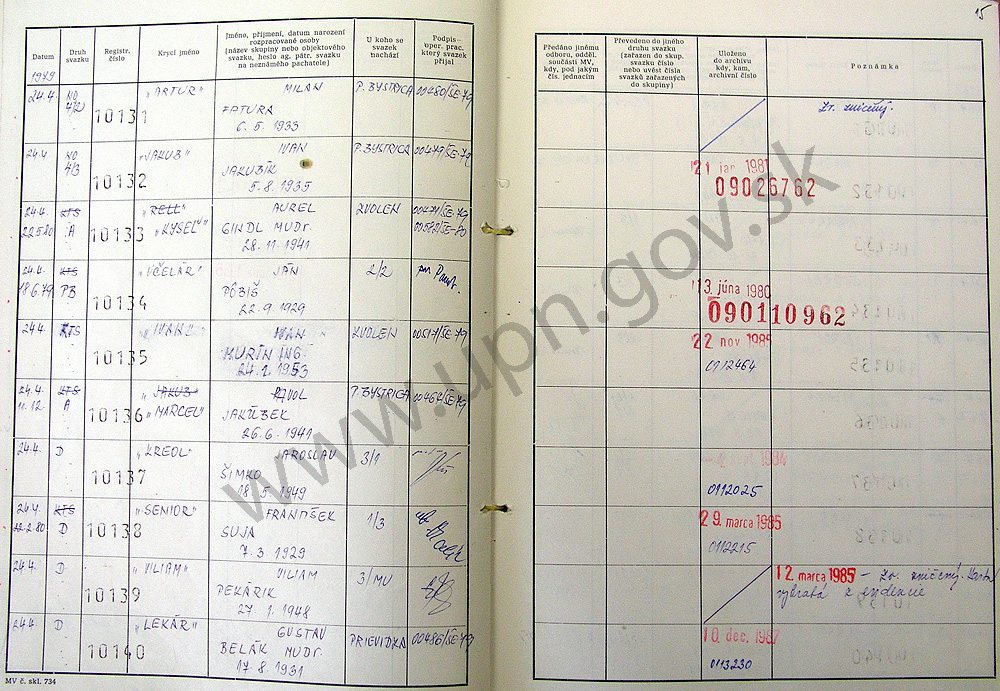 15
Datum
Druh svazku
Registr. číslo
Krycí jméno
Jméno, příjmení, datum narození rozpracované osoby (název skupiny nebo objektového svazku, heslo ag. pátr. svazku na neznámého pachatele)
U koho se svazek nachází
Podpis oper. prac. který svazek přijal
Předáno jinému odboru, odděl. součásti MV, kdy, pod jakým čís. jednacím
Převedeno do jiného druhu svazku (zařazen do skup. svazku číslo nebo uvést čísla svazků zařazených do skupiny)
Uloženo do archivu kdy, kam, archivní číslo
Poznámka
1979
24.4. 10131 "ARTUR" MILAN P. BYSTRICA 00480/SE-79
FATURA
6. 5. 1933
zv. zničený.
24.4 10132 "JAKUB" IVAN P. BYSTRICA 00479/SE-79
JAKUBÍK
5. 8. 1935
21 jan 1981
09026762
24.4. KTS "RELL" AUREL ZVOLEN 00471/SE-79
22.5.80 A 10133 "KYSEĽ" GINDL MUDr. 00582/SE-80
28. 11. 1941
24.4. KTS "VČELÁR" JÁN 2/2
18.6.79 PB 10134 PÔBIŠ
22. 9. 1929
13. júna 1980
090110962
24.4. KTS 10135 "IVAN" IVAN ZVOLEN 00517/SE-79
MURÍN ING.
24. 2. 1953
22 nov 1985
0112464
24.4. KTS "JAKUB" PAVOL P. BYSTRICA 00464/SE-79
11.12. A 10136 "MARCEL" JAKÚBEK
26. 6. 1941
24.4. D 10137 "KREOL" JAROSLAV 3/1
ŠIMKO
18. 5. 1949
0112025
24.4. KTS "SENIOR" FRANTIŠEK 1/3
22.2.80 D 10138 SUJA
7. 3 1929
29. marca 1985
0112215
24.4. D 10139 "VILIAM" VILIAM 3/MU
PEKÁRIK
27. 1. 1948
12. marca 1985 – zv. zničený. Karta
vybratá z evidencie
24.4. D 10140 "LEKÁR" GUSTAV PRIEVIDZA 00486/SE-79
BELÁK MUDr.
17. 8. 1931
10. dec. 1987
0113230
MV č. skl. 734
www.upn.gov.sk